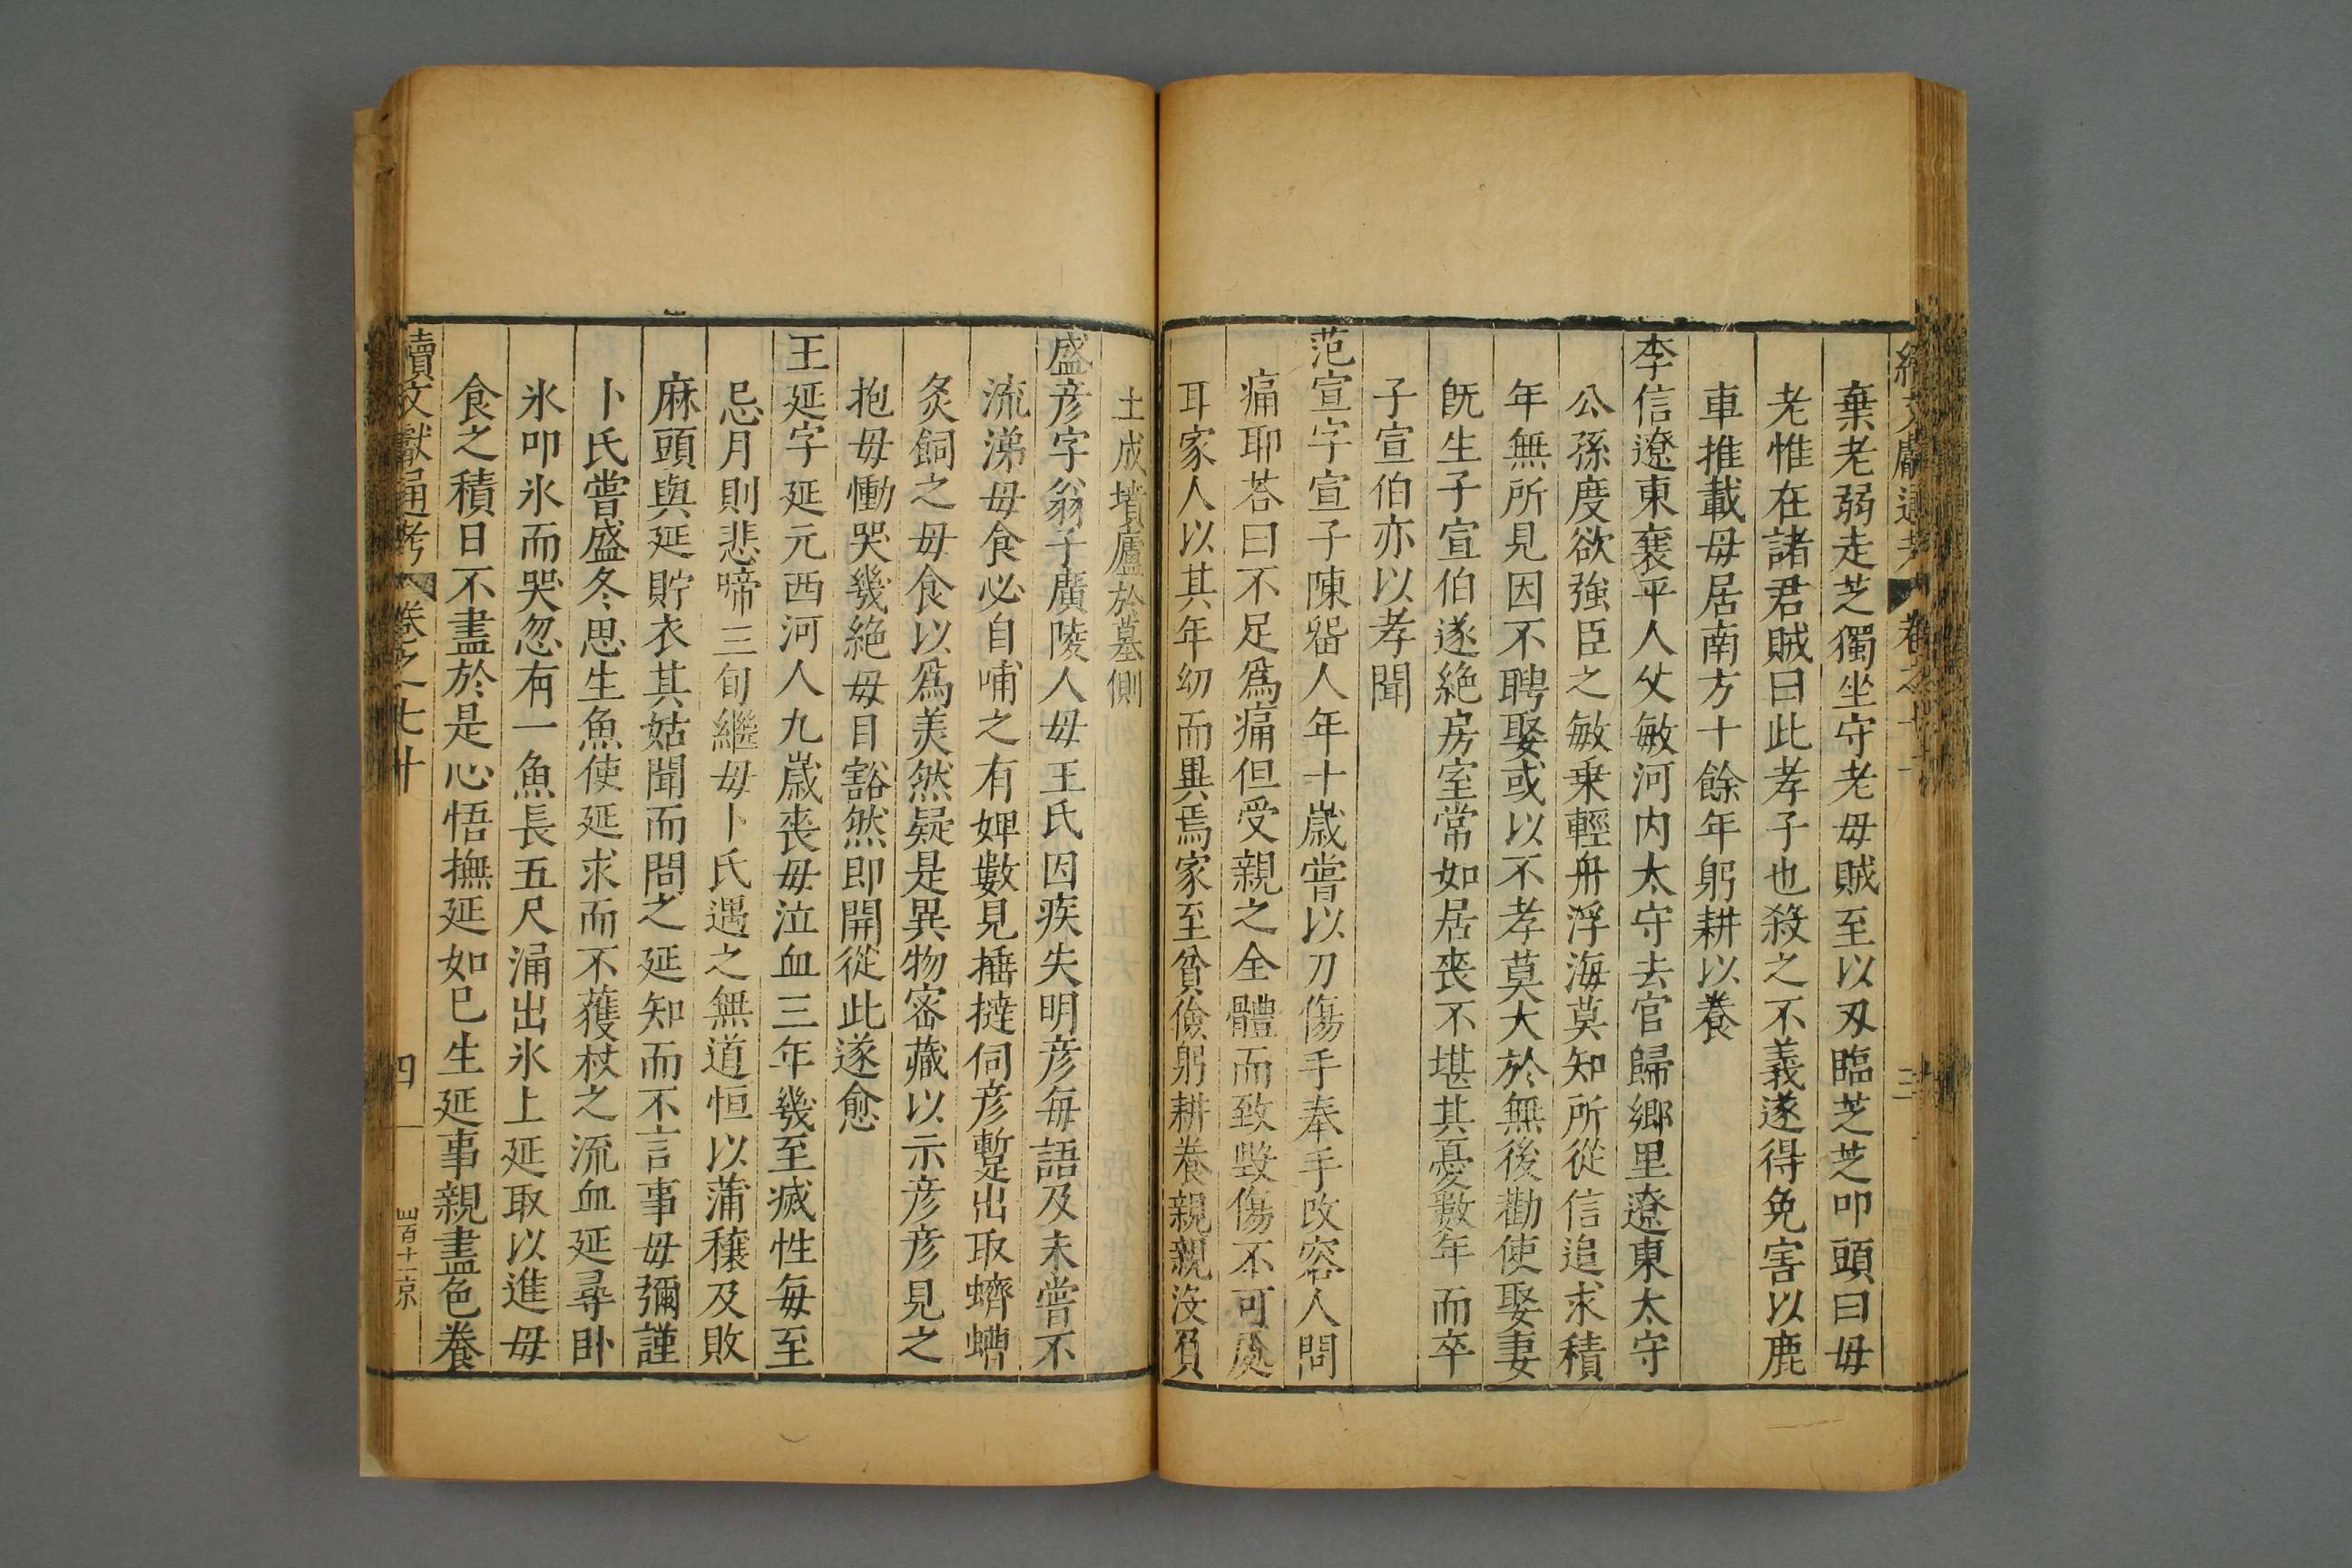 續文獻通考 卷之七十 三
棄老弱走芝獨坐守老母賊至以刃臨芝芝叩頭曰母
老惟在諸君賊曰此孝子也殺之不義遂得免害以鹿
車推載母居南方十餘年躬耕以養
李信遼東襄平人父敏河内太守去官歸鄉里遼東太守
公孫度欲強臣之敏乗輕舟浮海莫知所從信追求積
年無所見因不聘娶或以不孝莫大於無後勸使娶妻
旣生子宣伯遂絶房室常如居喪不堪其憂數年而卒
子宣伯亦以孝聞
范宣字宣子陳畱人年十歳嘗以刀傷手奉手改容人問
痛耶荅曰不足爲痛但受親之全體而致毀傷不可處
耳家人以其年幼而異焉家至貧儉躬耕養親親没負
土成墳廬於墓側
盛彦字翁子廣陵人母王氏因疾失明彦每語及未嘗不
流涕母食必自哺之有婢數見捶撻伺彦蹔出取蠐螬
炙飼之母食以爲美然疑是異物密藏以示彦彦見之
抱母慟哭幾絶母目豁然即開從此遂愈
王延字延元西河人九歳喪母泣血三年幾至滅性每至
忌月則悲啼三旬繼母卜氏遇之無道恒以蒲穰及敗
麻頭與延貯衣其姑聞而問之延知而不言事母彌謹
卜氏嘗盛冬思生魚使延求而不獲杖之流血延尋卧
氷叩氷而哭忽有一魚長五尺涌出氷上延取以進母
食之積日不盡於是心悟撫延如已生延事親盡色養
續文獻通考 卷之七十 四